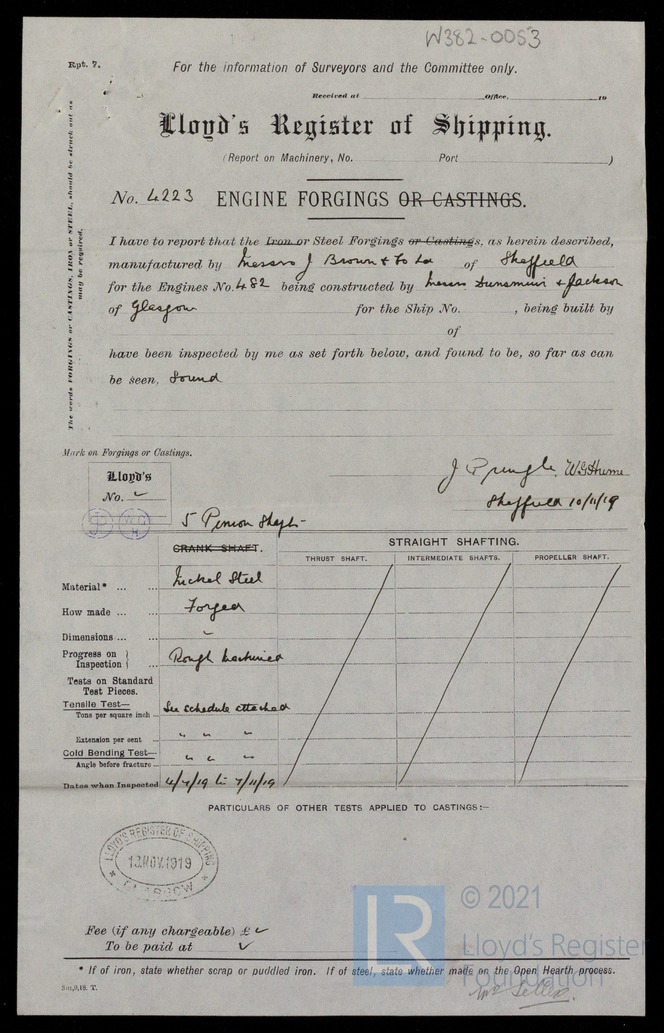 W382-0053
Rpt. 7.
For the information of Surveyors and the Committee only.
Received at Office, 19
Lloyd's Register of Shipping.
(Report on Machinery, No. Port )
The words FORGINGS or CASTINGS, IRON or STEEL, should be struck out as may be required.
No. 4223 ENGINE FORGINGS OR CASTINGS.
I have to report that the Iron or Steel Forgings or Castings, as herein described,
manufactured by Messrs J Brown & Co Ld of Sheffield
for the Engines No. 482 being constructed by Messrs Dunsmuir & Jackson
of Glasgow for the Ship No. , being built by
of
have been inspected by me as set forth below, and found to be, so far as can
be seen, Sound
Mark on Forgings or Castings.
Lloyd's
No. ✓
J Pringle. W.G. Hume
Sheffield 10/11/19
5 Pinion Shafts
CRANK SHAFT.
STRAIGHT SHAFTING.
THRUST SHAFT. INTERMEDIATE SHAFTS. PROPELLER SHAFT.
Material* ... ... Nickel Steel
How made ... ... Forged
Dimensions ... ... ~
Progress on Inspection } ... Rough Machined
Tests on Standard
Test Pieces.
Tensile Test—
Tons per square inch ... See schedule attached
Extension per cent ... " " "
Cold Bending Test—
Angle before fracture ... " " "
Dates when Inspected 4/7/19 to 7/11/19
PARTICULARS OF OTHER TESTS APPLIED TO CASTINGS:—
LLOYD'S REGISTER OF SHIPPING
13.NOV.1919
GLASGOW
Fee (if any chargeable) £ ✓
To be paid at ✓
* If of iron, state whether scrap or puddled iron. If of steel, state whether made on the Open Hearth process.
3m,9,18. T.
LR
© 2021
Lloyd's Register
Foundation